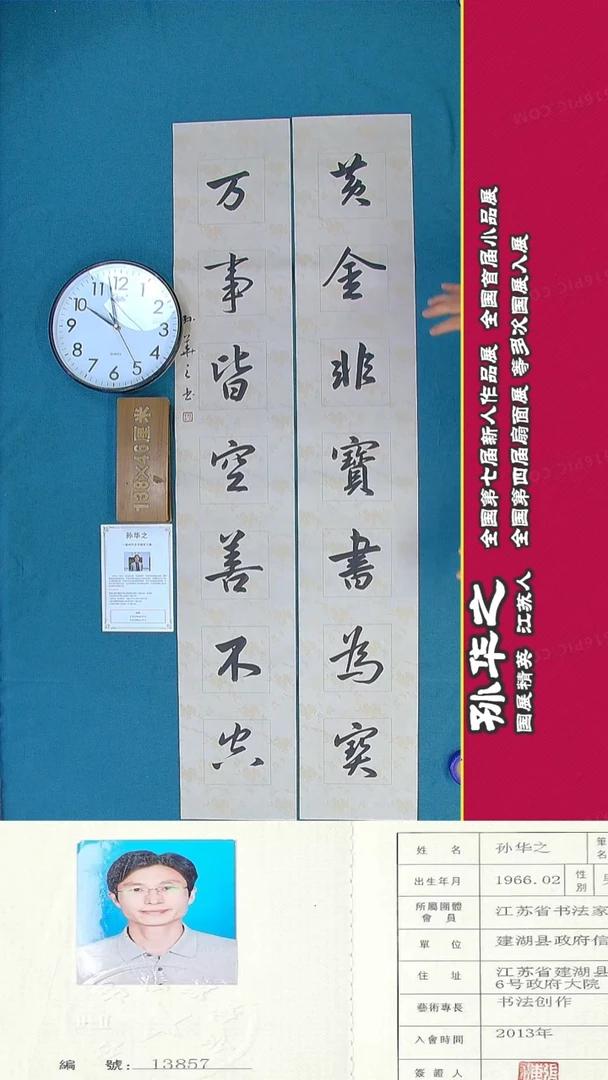 黄金非寶書為寶
万事皆空善不空
孙华之书
11 12 1
10 2
9 3
8 4
7 6 5
QUARTZ
138×46厘米
孙华之
孙华之
国展精英 江苏人
全国第七届新人作品展 全国首届小品展
全国第四届扇面展 等多次国展入展
編 號: 13857
姓 名 孙华之 筆名
出生年月 1966.02 性別
所屬團體會員 江苏省书法家
單 位 建湖县政府信
住 址 江苏省建湖县
6号政府大院
藝術專長 书法创作
入會時間 2013年
簽證人